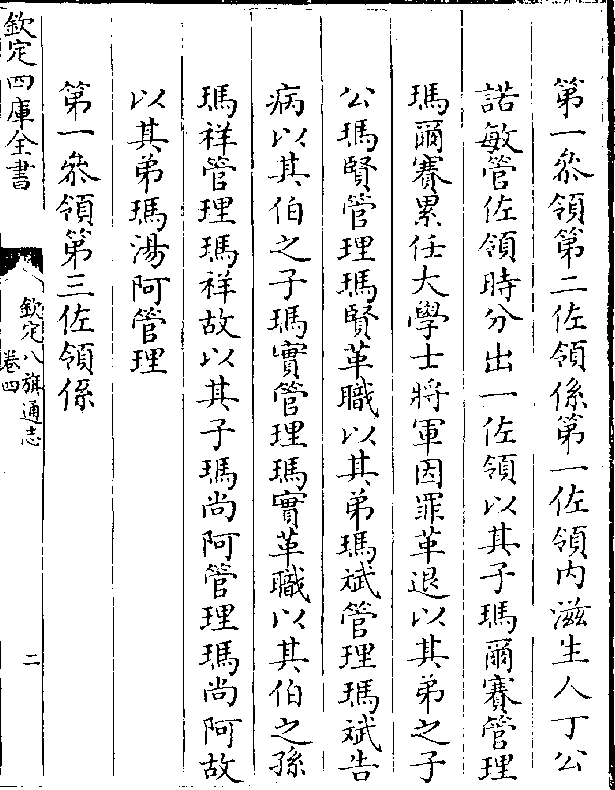 第一叅領第二佐領係第一佐領内滋生人丁公
諾敏管佐領時分出一佐領以其子瑪爾賽管理
瑪爾賽累任大學士將軍因罪革退以其弟之子
公瑪賢管理瑪賢革職以其弟瑪斌管理瑪斌告
病以其伯之子瑪實管理瑪實革職以其伯之孫
瑪祥管理瑪祥故以其子瑪尚阿管理瑪尚阿故
以其弟瑪湯阿管理
第一叅領第三佐領係
欽定四庫全書
欽定八旗通志
卷四
二